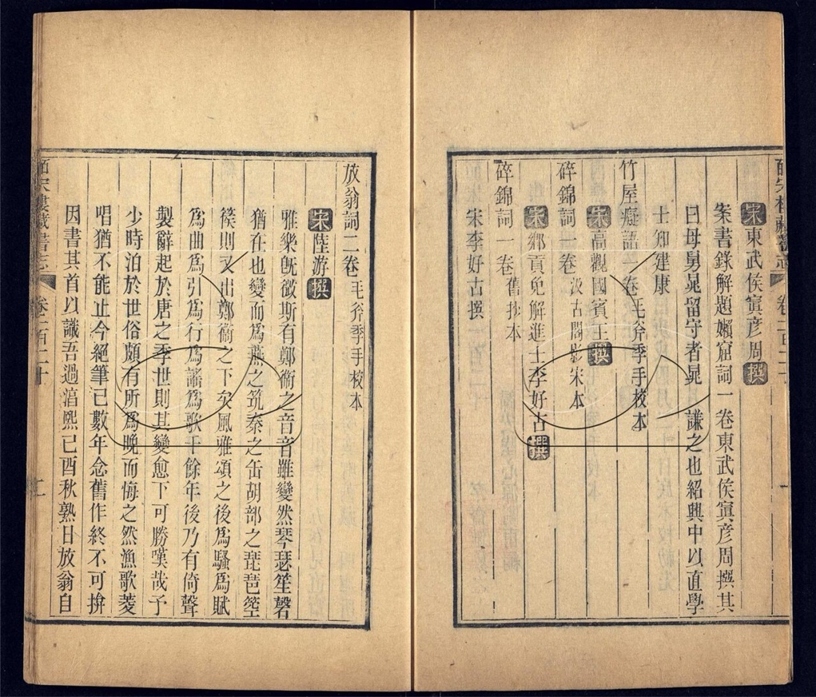 宋東武侯寘彥周撰
案書錄解題嬾窟詞一卷東武侯寘彥周撰其
曰母舅晁留守者晁謙之也紹興中以直學
士知建康
竹屋癡語一卷毛斧季手校本
宋高觀國賓王撰
碎錦詞一卷汲古閣影宋本
宋鄉貢免解進士李好古撰
碎錦詞一卷舊抄本
宋李好古撰
放翁詞二卷毛斧季手校本
宋陸游撰
雅樂旣微斯有鄭衞之音音雖變然琴瑟笙磬
猶在也變而爲燕之筑秦之缶胡部之琵琶箜
篌則又出鄭衞之下矣風雅頌之後爲騷爲賦
爲曲爲引爲行爲謠爲歌千餘年後乃有倚聲
製辭起於唐之季世則其變愈下可勝嘆哉予
少時汨於世俗頗有所爲晚而悔之然漁歌菱
唱猶不能止今絕筆已數年念舊作終不可揜
因書其首以識吾過淳熙己酉秋熟日放翁自
皕宋樓藏書志 卷一百二十 二